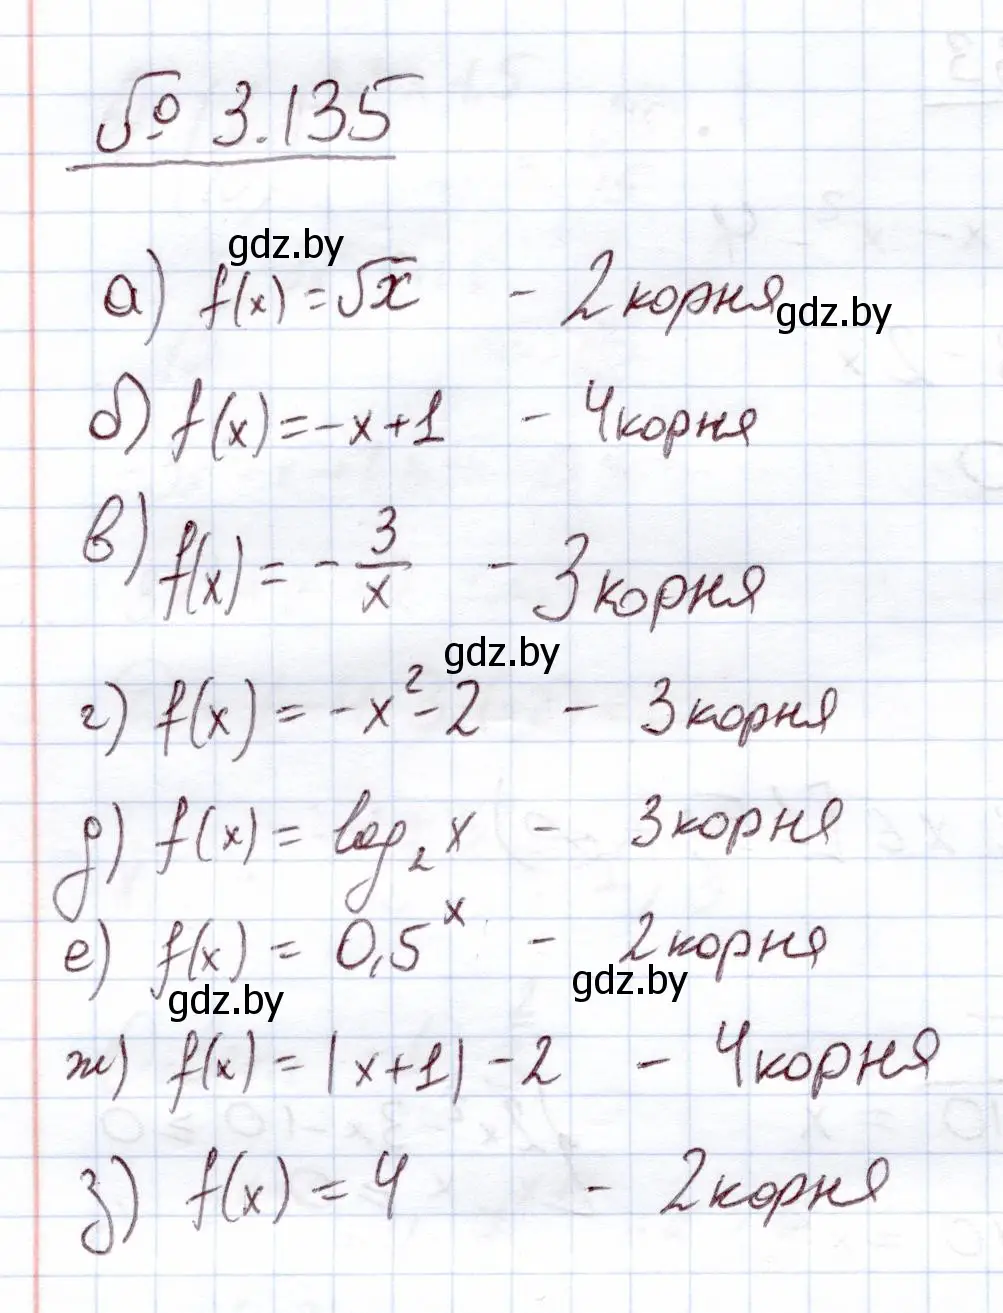 № 3.135
gdz.by
а) f(x) = √x - 2 корня
gdz.by
б) f(x) = -x+1 - 4 корня
в) f(x) = - 3/x - 3 корня
gdz.by
г) f(x) = -x² - 2 - 3 корня
д) f(x) = log₂ x - 3 корня
е) f(x) = 0,5ˣ - 2 корня
gdz.by
gdz.by
ж) f(x) = |x+1| - 2 - 4 корня
з) f(x) = 4 - 2 корня